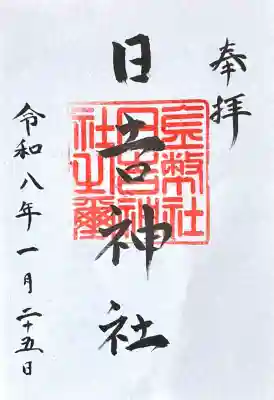 奉拝
日吉神社
幣社
日吉神
社之璽
令和八年一月二十五日